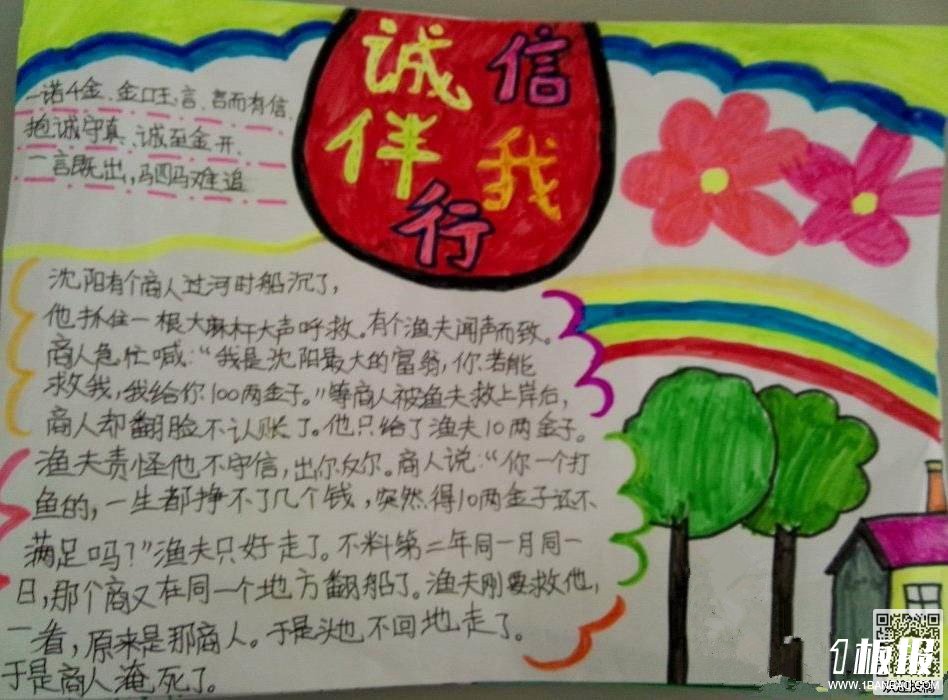 诚信
伴我
行
一诺千金、金口玉言、言而有信、
抱诚守真、诚至金开、
一言既出，驷马难追
沈阳有个商人过河时船沉了，
他抓住一根大麻杆大声呼救。有个渔夫闻声而致。
商人急忙喊：“我是沈阳最大的富翁，你若能
救我，我给你100两金子。”等商人被渔夫救上岸后，
商人却翻脸不认账了。他只给了渔夫10两金子。
渔夫责怪他不守信，出尔反尔。商人说：“你一个打
鱼的，一生都挣不了几个钱，突然得10两金子还不
满足吗？”渔夫只好走了。不料第二年同一月同一
日，那个商又在同一个地方翻船了。渔夫刚要救他，
一看，原来是那商人。于是头也不回地走了。
于是商人淹死了。
1板报
WWW.1BANBAO.COM